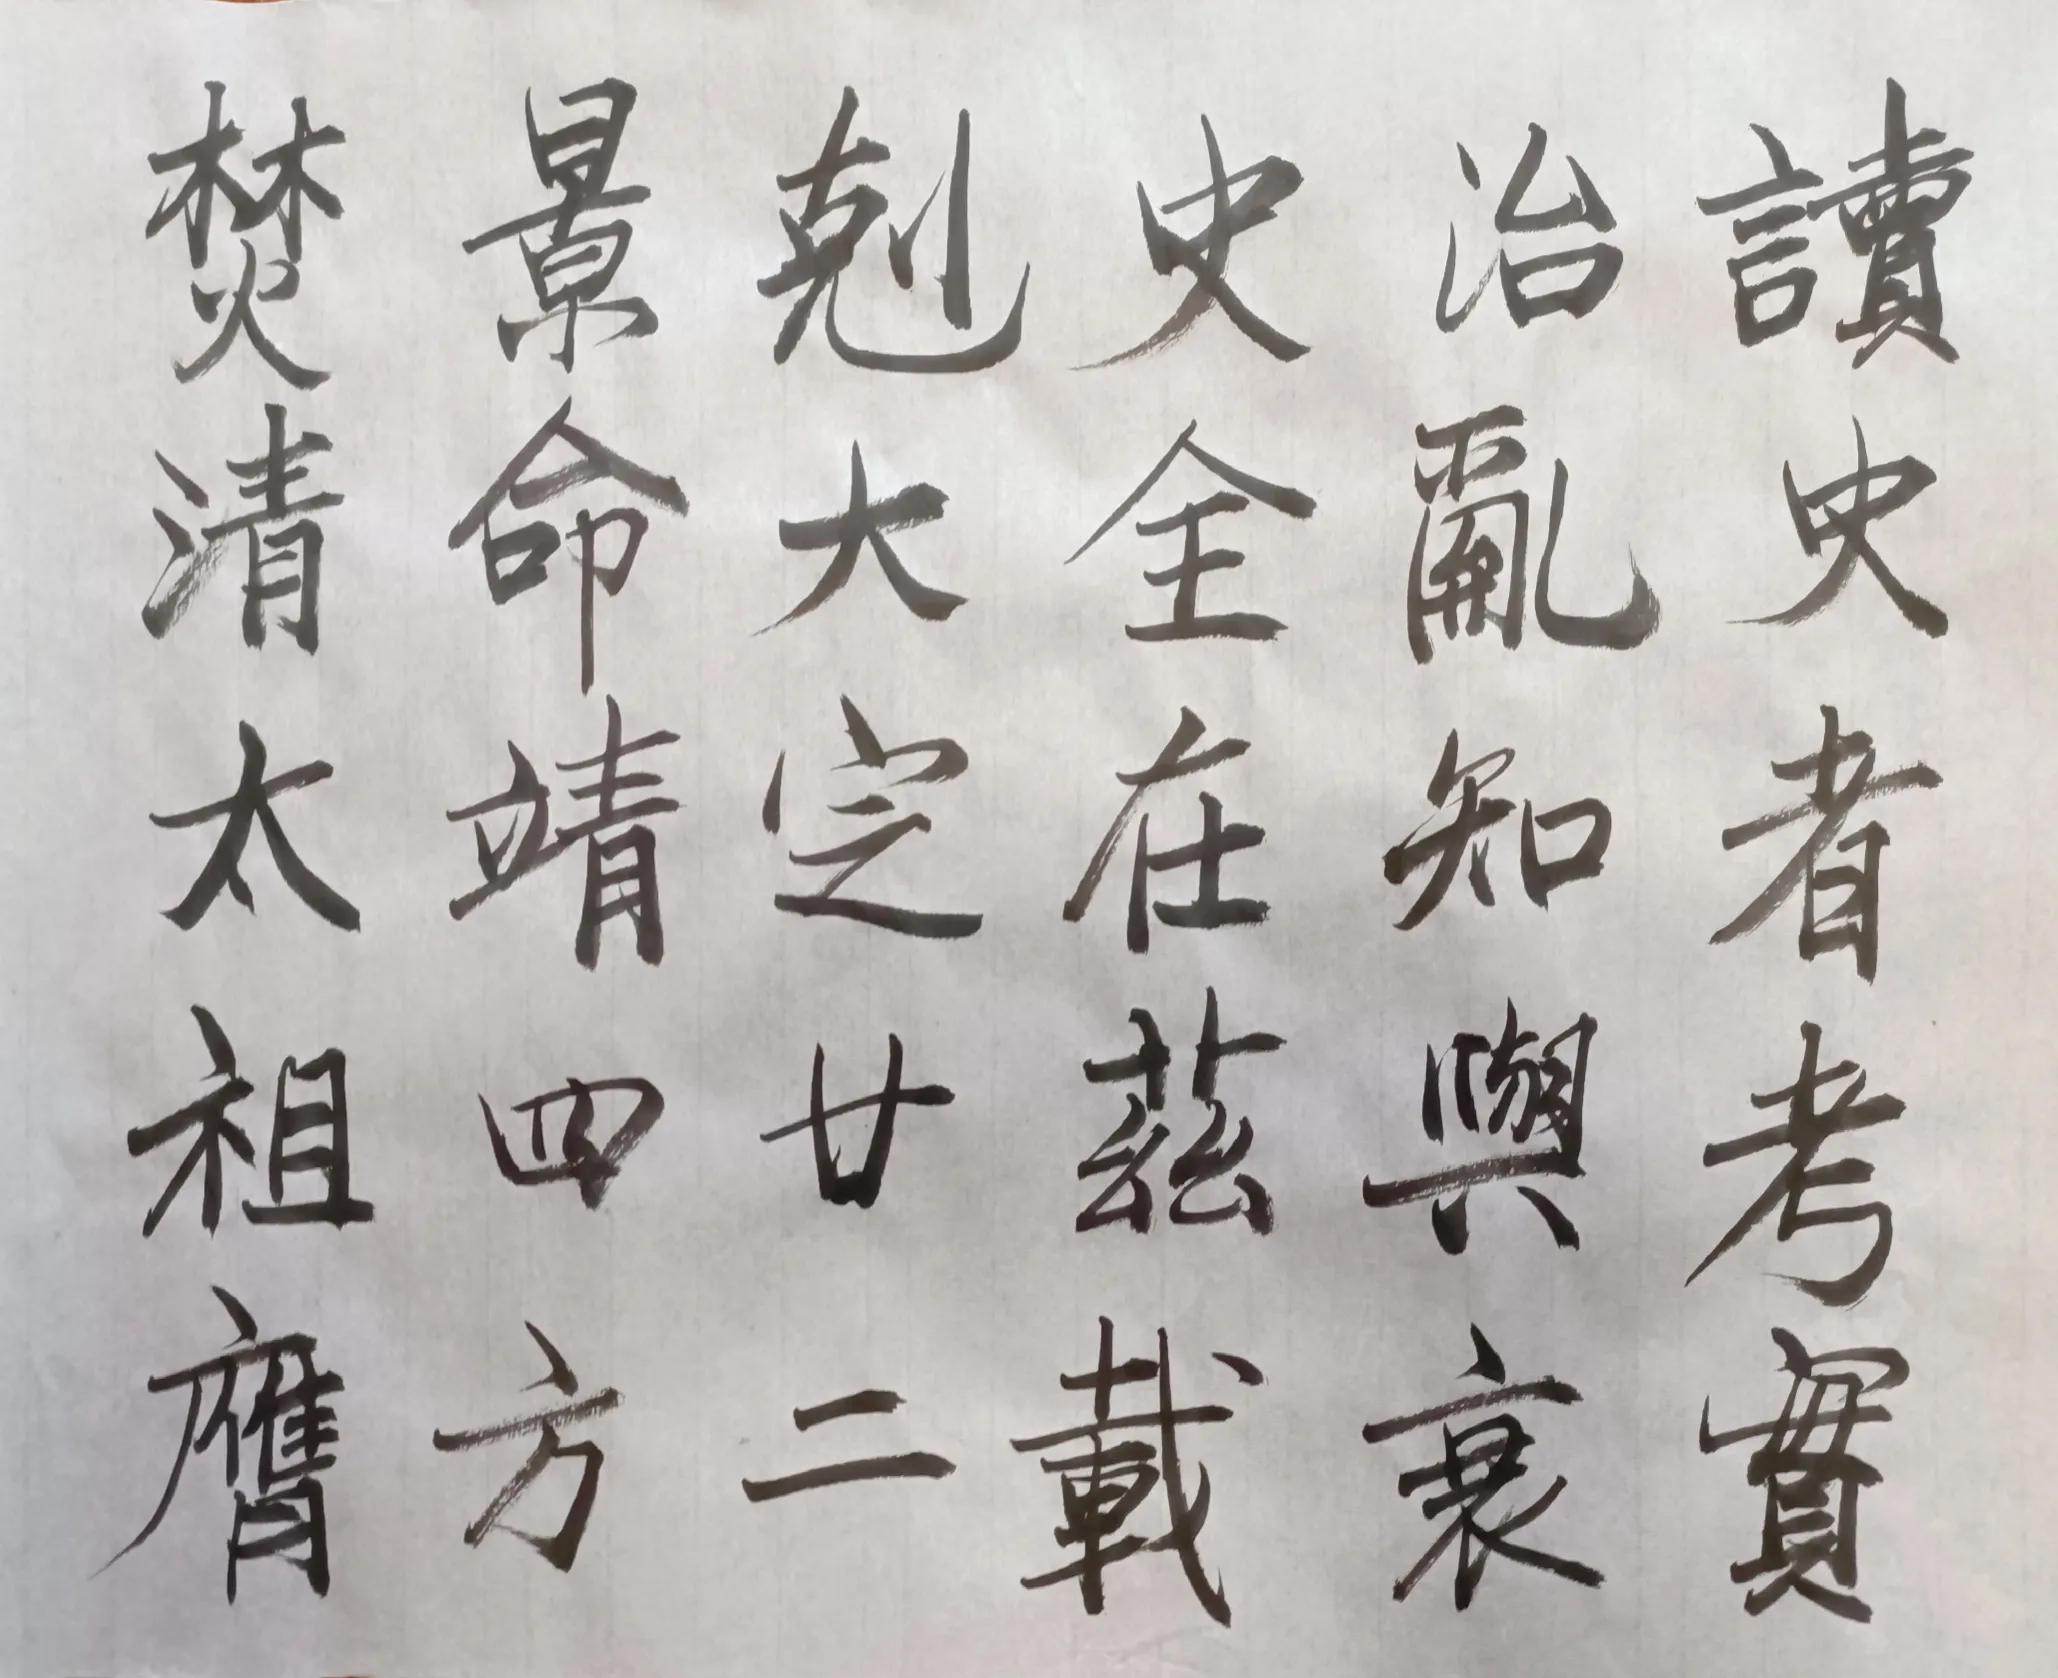 焚清太祖膺
景命靖四方
剋大定廿二
史全在茲載
治亂知興衰
讀史者考實